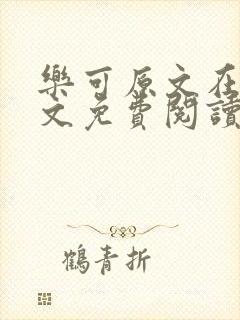 樂可原文在
文免費閱讀
鶴青折